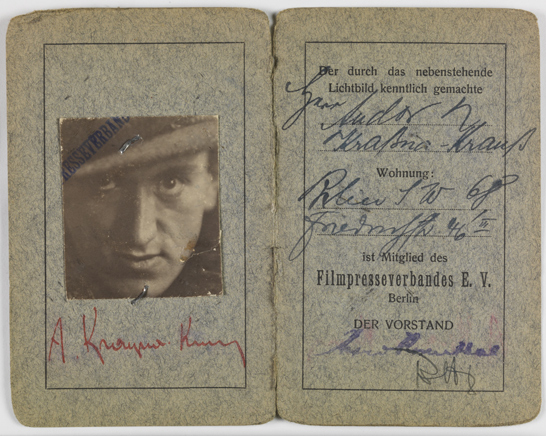 PRESSEVERBAND
A Kraszna-Krausz
Der durch das nebenstehende
Lichtbild kenntlich gemachte
Herr Andor
Kraßna-Krauß
Wohnung:
Berlin S W 68
Friedrichstr. 46 III
ist Mitglied des
Filmpresseverbandes E. V.
Berlin
DER VORSTAND